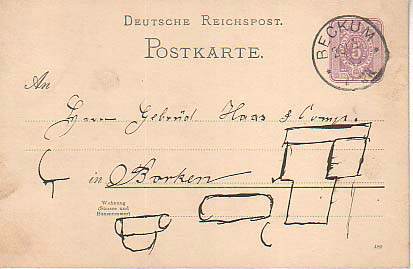 DEUTSCHE REICHSPOST.
POSTKARTE.
BECKUM
5
An
Herrn Gebrüd Haas & Comp.
in Borken
Wohnung
(Strasse und
Hausnummer)